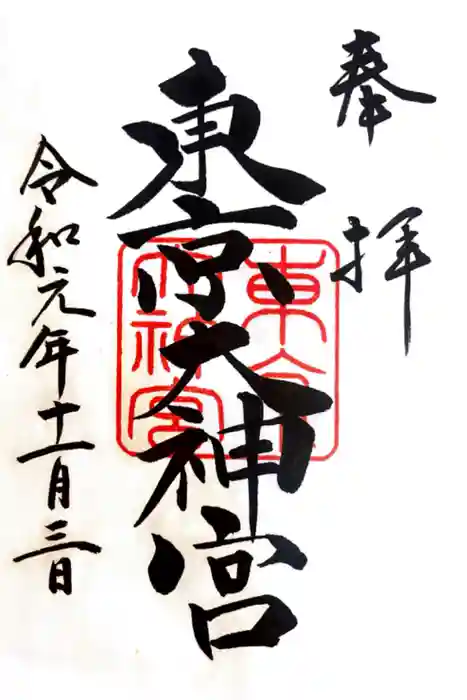 奉拝
東京大神宮
令和元年十一月三日
東京大神宮